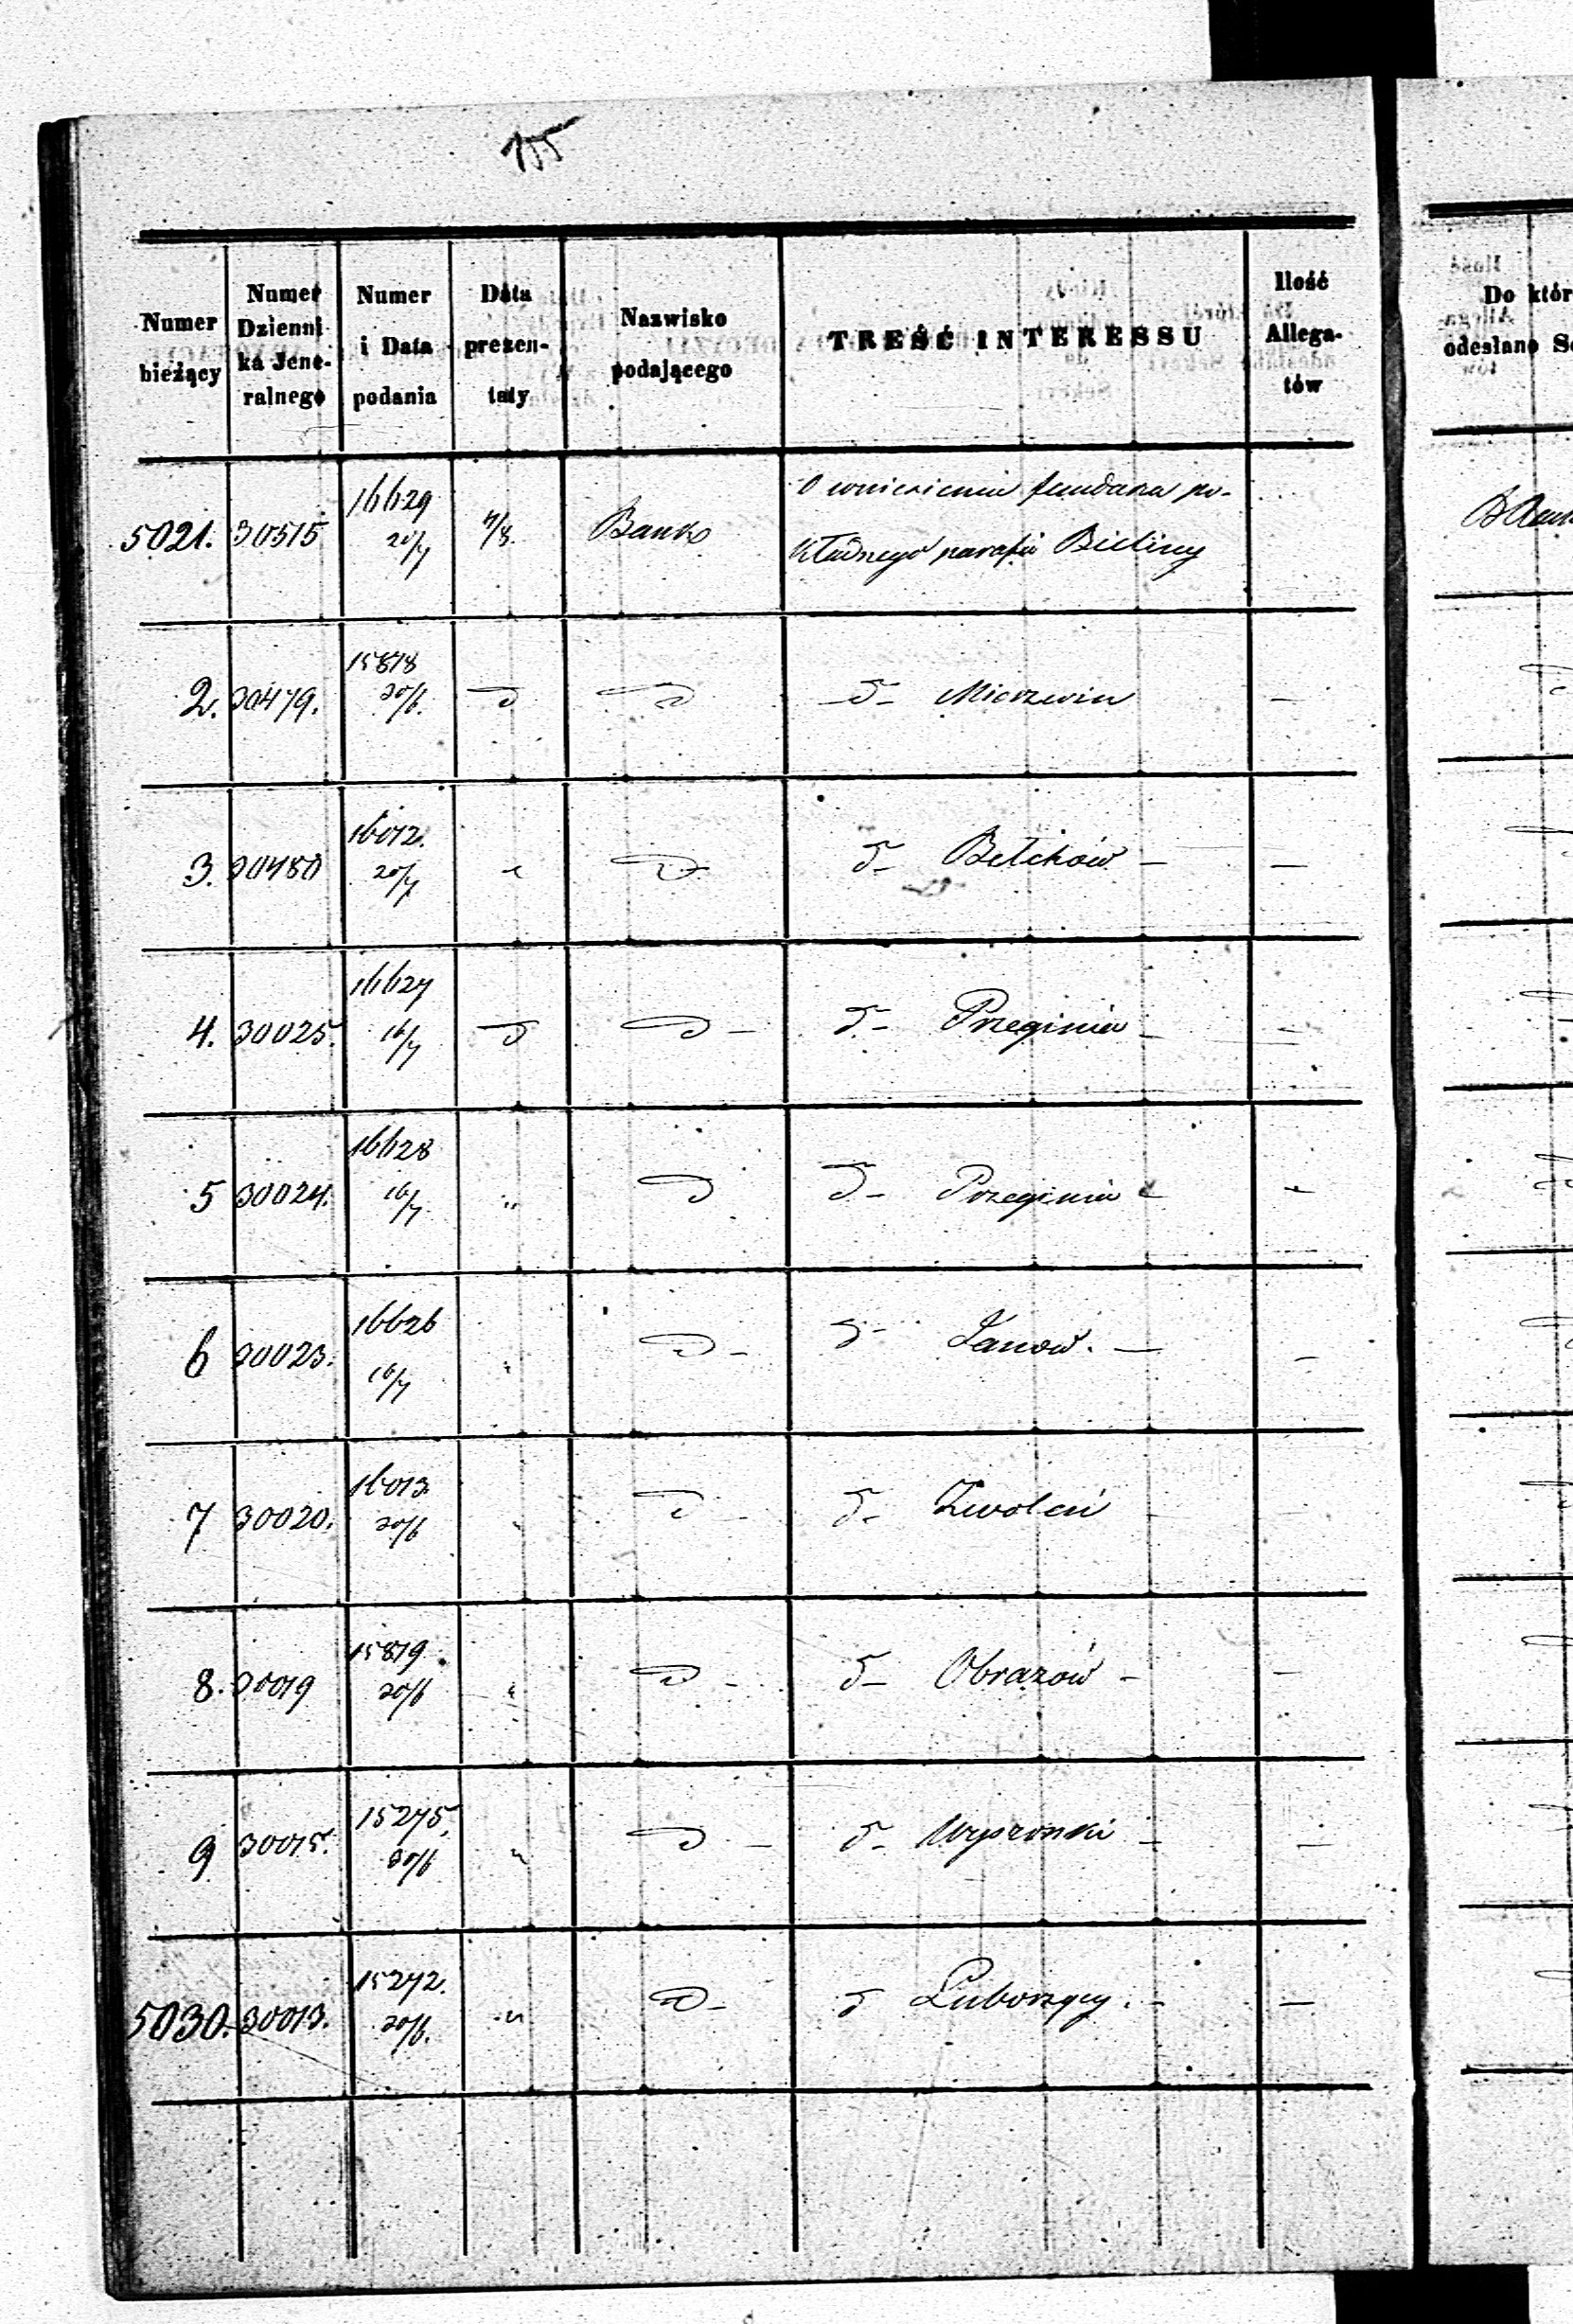 155
Numer bieżący | Numer Dzienni- ka Jene- ralnego | Numer i Data podania | Data prezen- taty | Nazwisko podającego | TREŚĆ INTERESSU | Ilość Allega- tów
5021. | 30515 | 16629 20/7 | 4/8. | Bank | O wniesieniu fundusza po-
kładnego parafii Bieliny
2. | 30479. | 15878 20/6. | D | D | D- Mierzwin | —
3. | 30480 | 16012. 20/7 | " | D | D- Bełchów — | —
4. | 30025. | 16627 16/7 | D | D — | D- Przeginia — | —
5 | 30024. | 16628 16/7 | " | D | D- Przeginia | —
6 | 30023. | 16626 16/7 | " | D — | D- Janow. — | —
7 | 30020. | 16013. 20/6 | " | D — | D- Zwoleń
8. | 30019 | 15879. 20/6 | " | D — | D- Obrazów — | —
9 | 30015. | 15275. 20/6 | " | D — | D- — | —
5030. | 30013. | 15272. 20/6. | " | D — | D Luborzycy. — | —
Do któr
odesłano Se
Bank